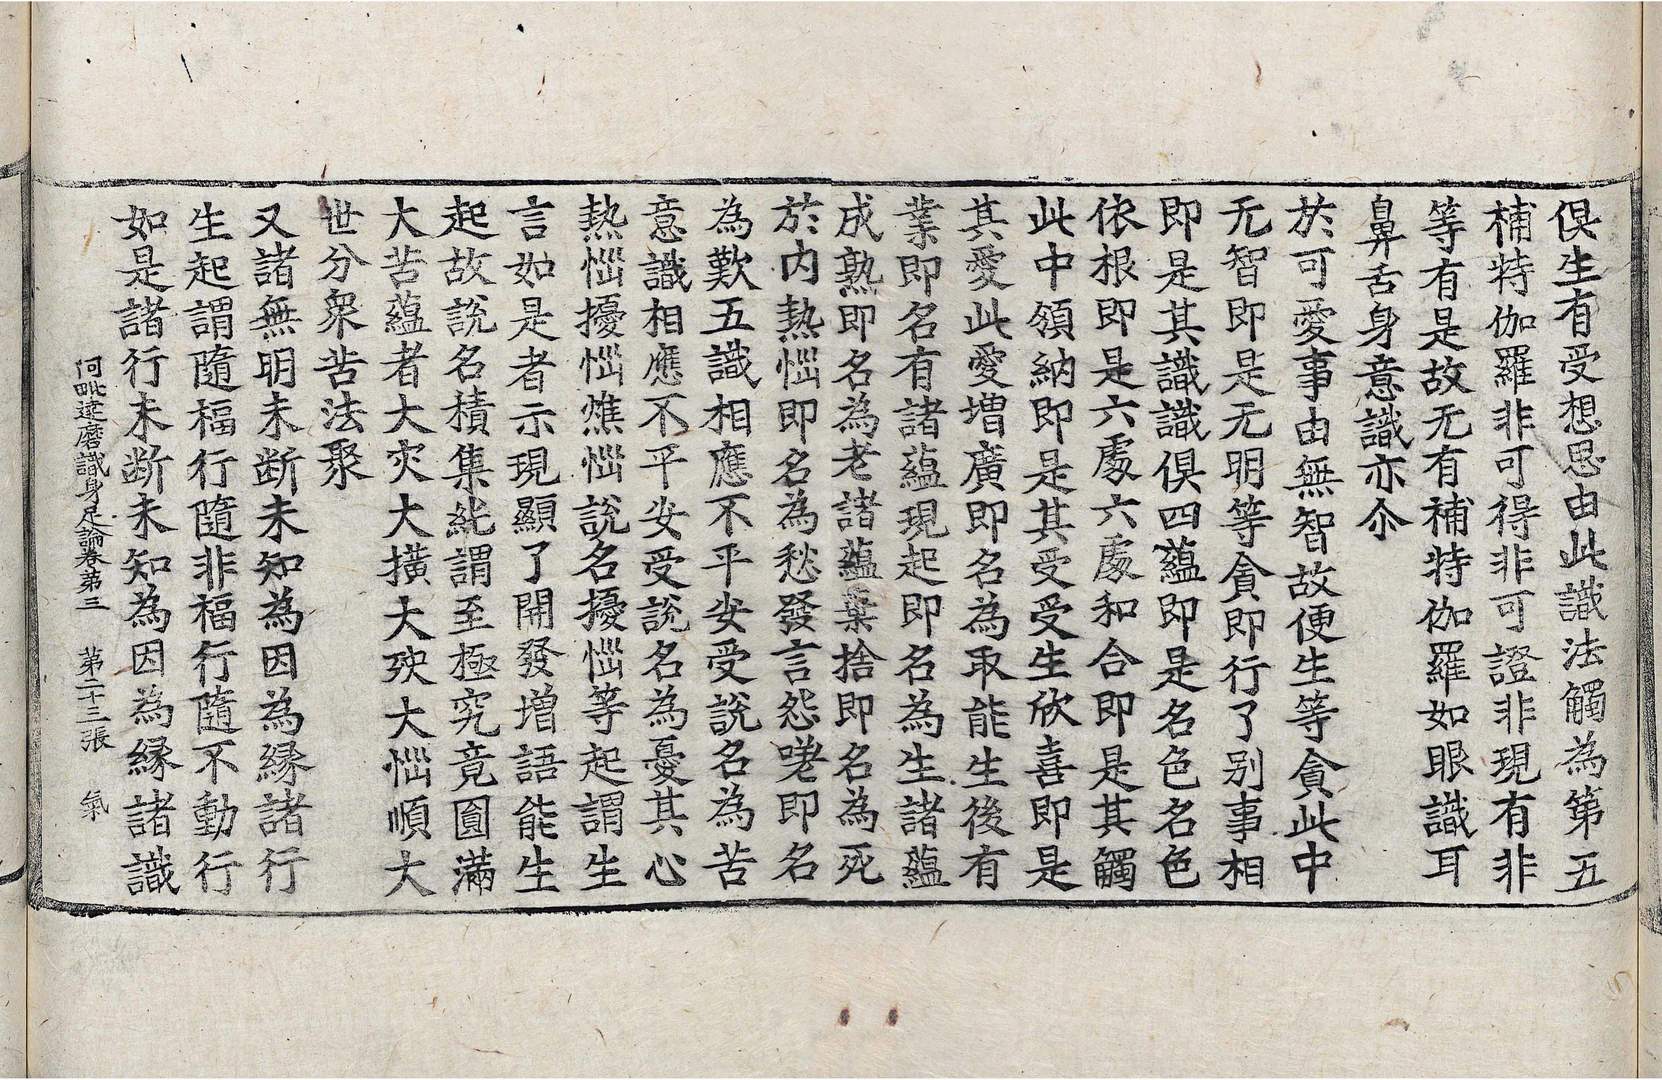 俱生有受想思由此識法觸為第五
補特伽羅非可得非可證非現有非
等有是故无有補特伽羅如眼識耳
鼻舌身意識亦尒
於可愛事由無智故便生等貪此中
无智即是无明等貪即行了別事相
即是其識識俱四蘊即是名色名色
依根即是六處六處和合即是其觸
此中領納即是其受受生欣喜即是
其愛此愛增廣即名為取能生後有
業即名有諸蘊現起即名為生諸蘊
成熟即名為老諸蘊棄捨即名為死
於內熱惱即名為愁發言怨嗟即名
為歎五識相應不平安受說名為苦
意識相應不平安受說名為憂其心
熱惱擾惱燋惱說名擾惱等起謂生
言如是者示現顯了開發增語能生
起故說名積集純謂至極究竟圓滿
大苦蘊者大灾大橫大殃大惱順大
世分衆苦法聚
又諸無明未断未知為因為緣諸行
生起謂隨福行隨非福行隨不動行
如是諸行未断未知為因為緣諸識
阿毗達磨識身足論卷第三　第二十三張　氣